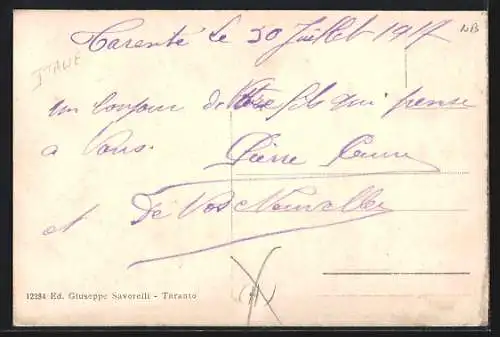 Tarente le 30 Juillet 1917
NB
ITALIE
un bonjour de Votre fils qui pense
a Vous. Pierre
et De Vos Nouvelles
12294 Ed. Giuseppe Savorelli - Taranto